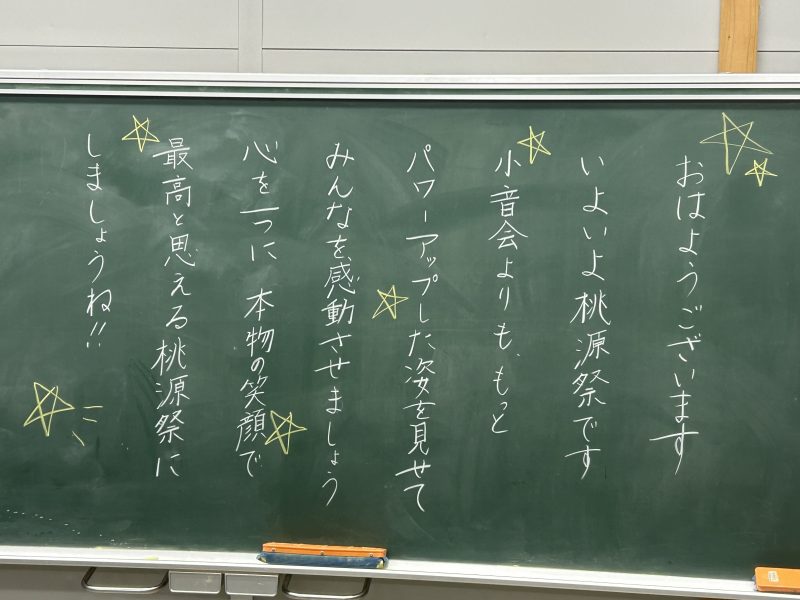 おはようございます
いよいよ桃源祭です
小音会よりも、もっと
パワーアップした姿を見せて
みんなを感動させましょう
心を一つに 本物の笑顔で
最高と思える桃源祭に
しましょうね!!